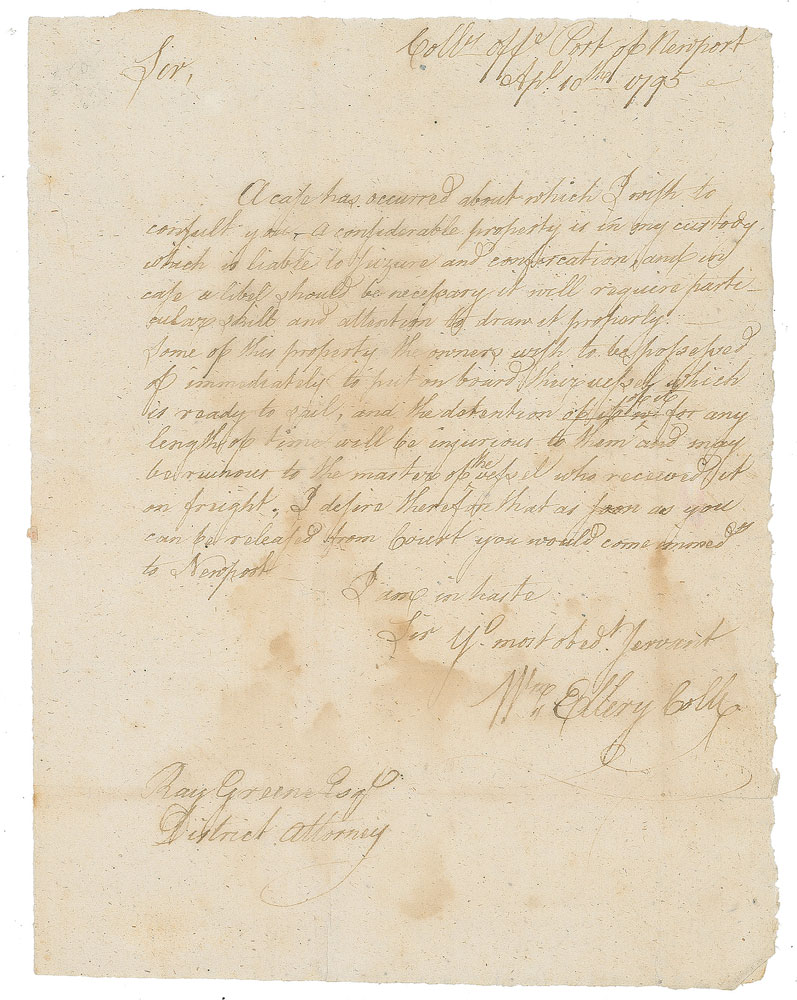 Coll.rs off.e Port of Newport
Sir,
Apl. 10th 1795
A case has occurred about which I wish to
consult you. A considerable property is in my custody,
which is liable to seizure and confiscation, and in
case a libel should be necessary it will require parti-
cular skill and attention to draw it properly. —
Some of this property the owners wish to be possessed
of immediately to put on board their vessel, which
is ready to sail, and the detention of it for any
length of time will be injurious to them and may
be ruinous to the master of the vessel who received it
on freight. I desire therefore that as soon as you
can be released from Court you would come immedly
to Newport
I am in haste
Sir Yr. most obedt. servant
Wm. Ellery Collr
Ray Greene Esqr
District Attorney